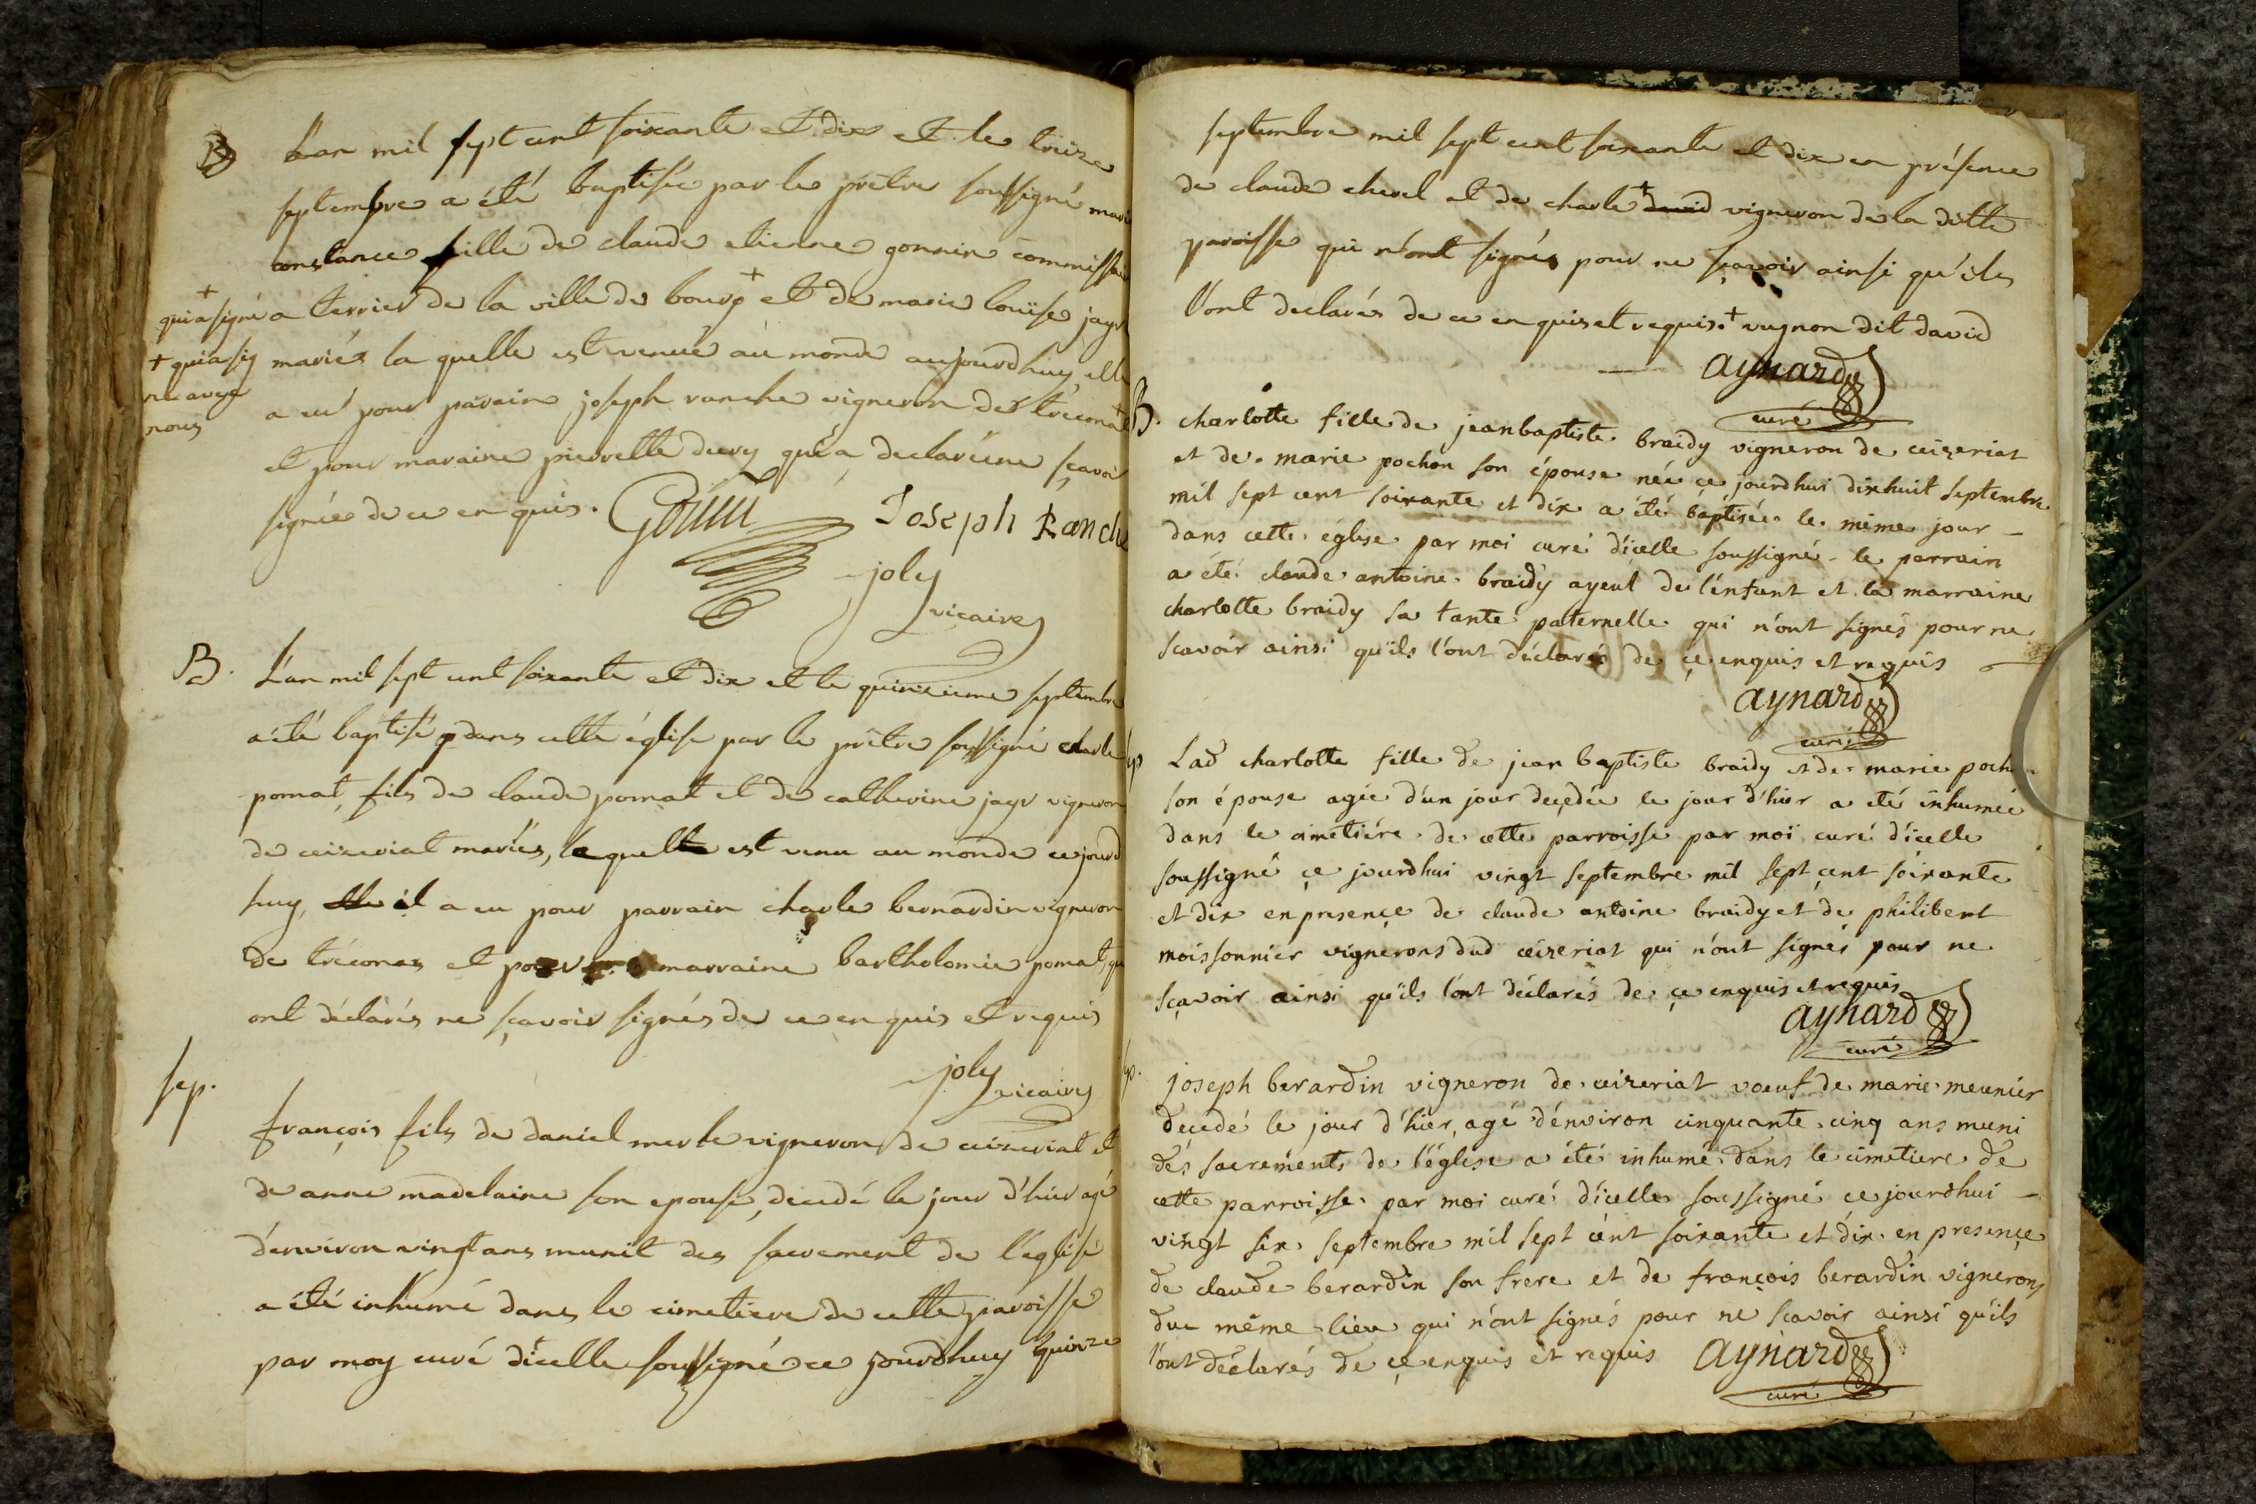 B
L'an mil sept cent soixante et dix et le treize
septembre a été baptisée par le prêtre soussigné marie
constance fille de claude etienne gonnin commissaire
+
qui a signé a terrier de la ville de bourg + et de marie louise jayr
+ qui a sig mariés la quelle est venuë au monde aujourdhuy, elle
né avec
nous a eu pour parain joseph ranche vigneron de treconas +
et pour maraine pierrette decry qui a declarée ne sçavoir
signée de ce enquis. Joseph Ranche
joly
vicaire
B. L'an mil sept cent soixante et dix et le quinzieme septembre
a été baptisé dans cette église par le prêtre soussigné charle
pomat, fils de claude pomat et de catherine jayr vigneron
de ceizeriat mariés, lequelle est venu au monde ce jourd
huy, elle il a eu pour parrain charle bernardin vigneron
de tréconas et pour marraine bartholomie pomat, qui
ont déclarés ne sçavoir signés de ce enquis et requis
joly vicaire
sep.
françois fils de daniel merle vigneron de ceizeriat et
de anne madelaine son epouse, decedé le jour d'hier agé
d'environ vingt ans munit des sacrement de l'église
a été inhumé dans le cimetiere de cette paroisse
par moy curé d'icelle soussigné ce jourdhuy quinze
septembre mil sept cent soixante et dix en présence
de claude chevel et de charle + david vigneron de la ditte
paroisse qui n'ont signés pour ne sçavoir ainsi qu'ils
l'ont declarés de ce enquis et requis. + vugnon dit david
aynard
curé
B. charlotte fille de jean baptiste braidy vigneron de ceizeriat
et de marie pochon son épouse née ce jourdhui dixhuit septembre
mil sept cent soixante et dix a été baptisée le même jour
dans cette église par moi curé d'icelle soussigné le parrain
a été claude antoine braidy ayeul de l'enfant et la marraine
charlotte braidy sa tante paternelle qui n'ont signés pour ne
scavoir ainsi qu'ils l'ont déclarés de ce enquis et requis
aynard
curé
sp. Lad charlotte fille de jean baptiste braidy et de marie pochon
son épouse agée d'un jour decedée le jour d'hier a été inhumée
dans le cimetiére de cette parroisse par moi curé d'icelle
soussigné ce jourdhui vingt septembre mil sept cent soixante
et dix en presence de claude antoine braidy et de philibert
moissonnier vignerons dud ceizeriat qui n'ont signés pour ne
sçavoir ainsi qu'ils l'ont déclarés de ce enquis et requis
aynard
curé
sp. joseph berardin vigneron de ceizeriat voeuf de marie meunier
decedé le jour d'hier, agé d'environ cinquante cinq ans muni
des sacrements de l'église a été inhumé dans le cimetiere de
cette parroisse par moi curé d'icelle soussigné ce jourdhui
vingt six septembre mil sept cent soixante et dix en presence
de claude berardin son frere et de françois berardin vignerons
due même lieu qui n'ont signés pour ne scavoir ainsi qu'ils
l'ont déclarés de ce enquis et requis aynard
curé